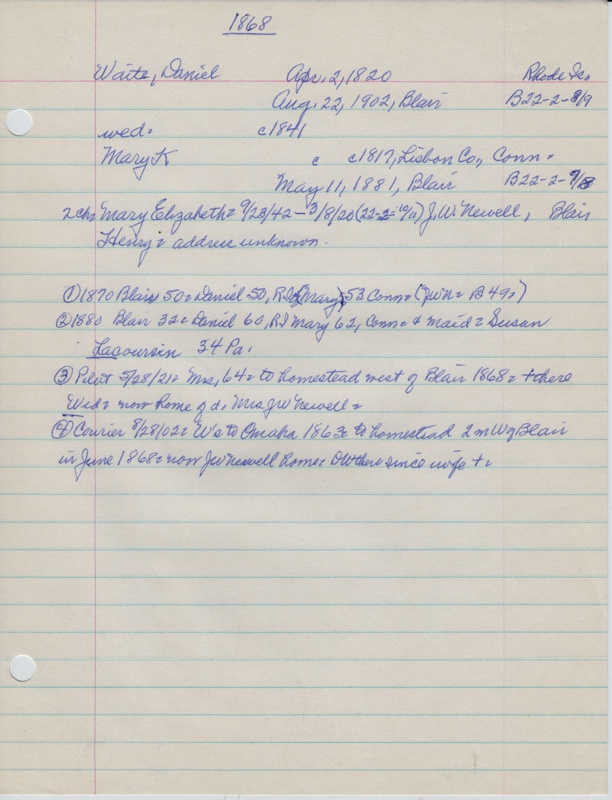 1868
Waite, Daniel Apr. 2, 1820 Rhode Is.
Aug. 22, 1902, Blair B22-2-8/9
wed= c1841
Mary K c c1817, Lisbon Co., Conn.
May 11, 1881, Blair B22-2-7/8
2 ch= Mary Elizabeth= 9/23/42 - 3/8/20 (22-2-10/11) J.W. Newell, Blair
Henry= address unknown.
① 1870 Blair 50= Daniel 50, RI Mary 53 Conn= (JWN= B 49=)
② 1880 Blair 32= Daniel 60, RI Mary 62, Conn= & maid= Susan
Lacoursin 34 Pa.
③ Pilot 5/28/21= Mrs, 64= to homestead west of Blair 1868= + there
Wed= now home of d, Mrs JW Newell=
④ Courier 8/28/02= Ws to Omaha 1863= to homestead 2 m W of Blair
in June 1868= now JW Newell home= DW there since wife +=